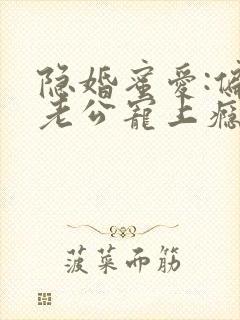 隐婚蜜爱:偏
老公宠上瘾
菠菜面筋